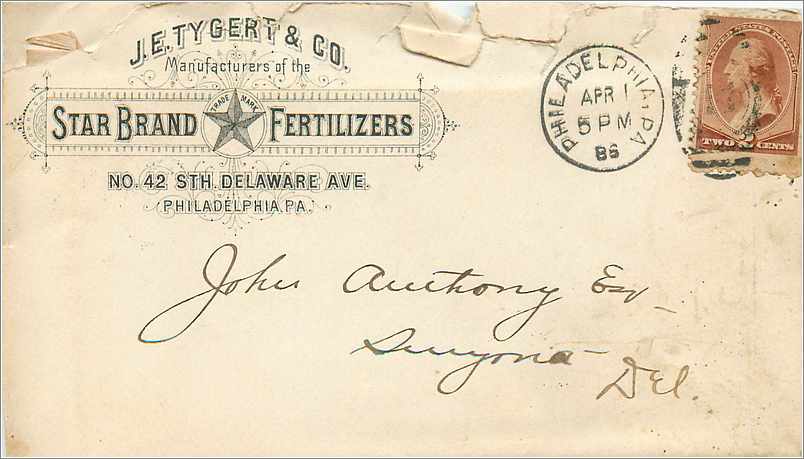 J.E. TYGERT & CO.
Manufacturers of the
TRADE MARK
STAR BRAND FERTILIZERS
NO. 42 STH. DELAWARE AVE.
PHILADELPHIA, PA.
PHILADELPHIA, PA
APR 1
5 PM
86
TWO 2 CENTS
John Anthony Esq
Smyrna
Del.